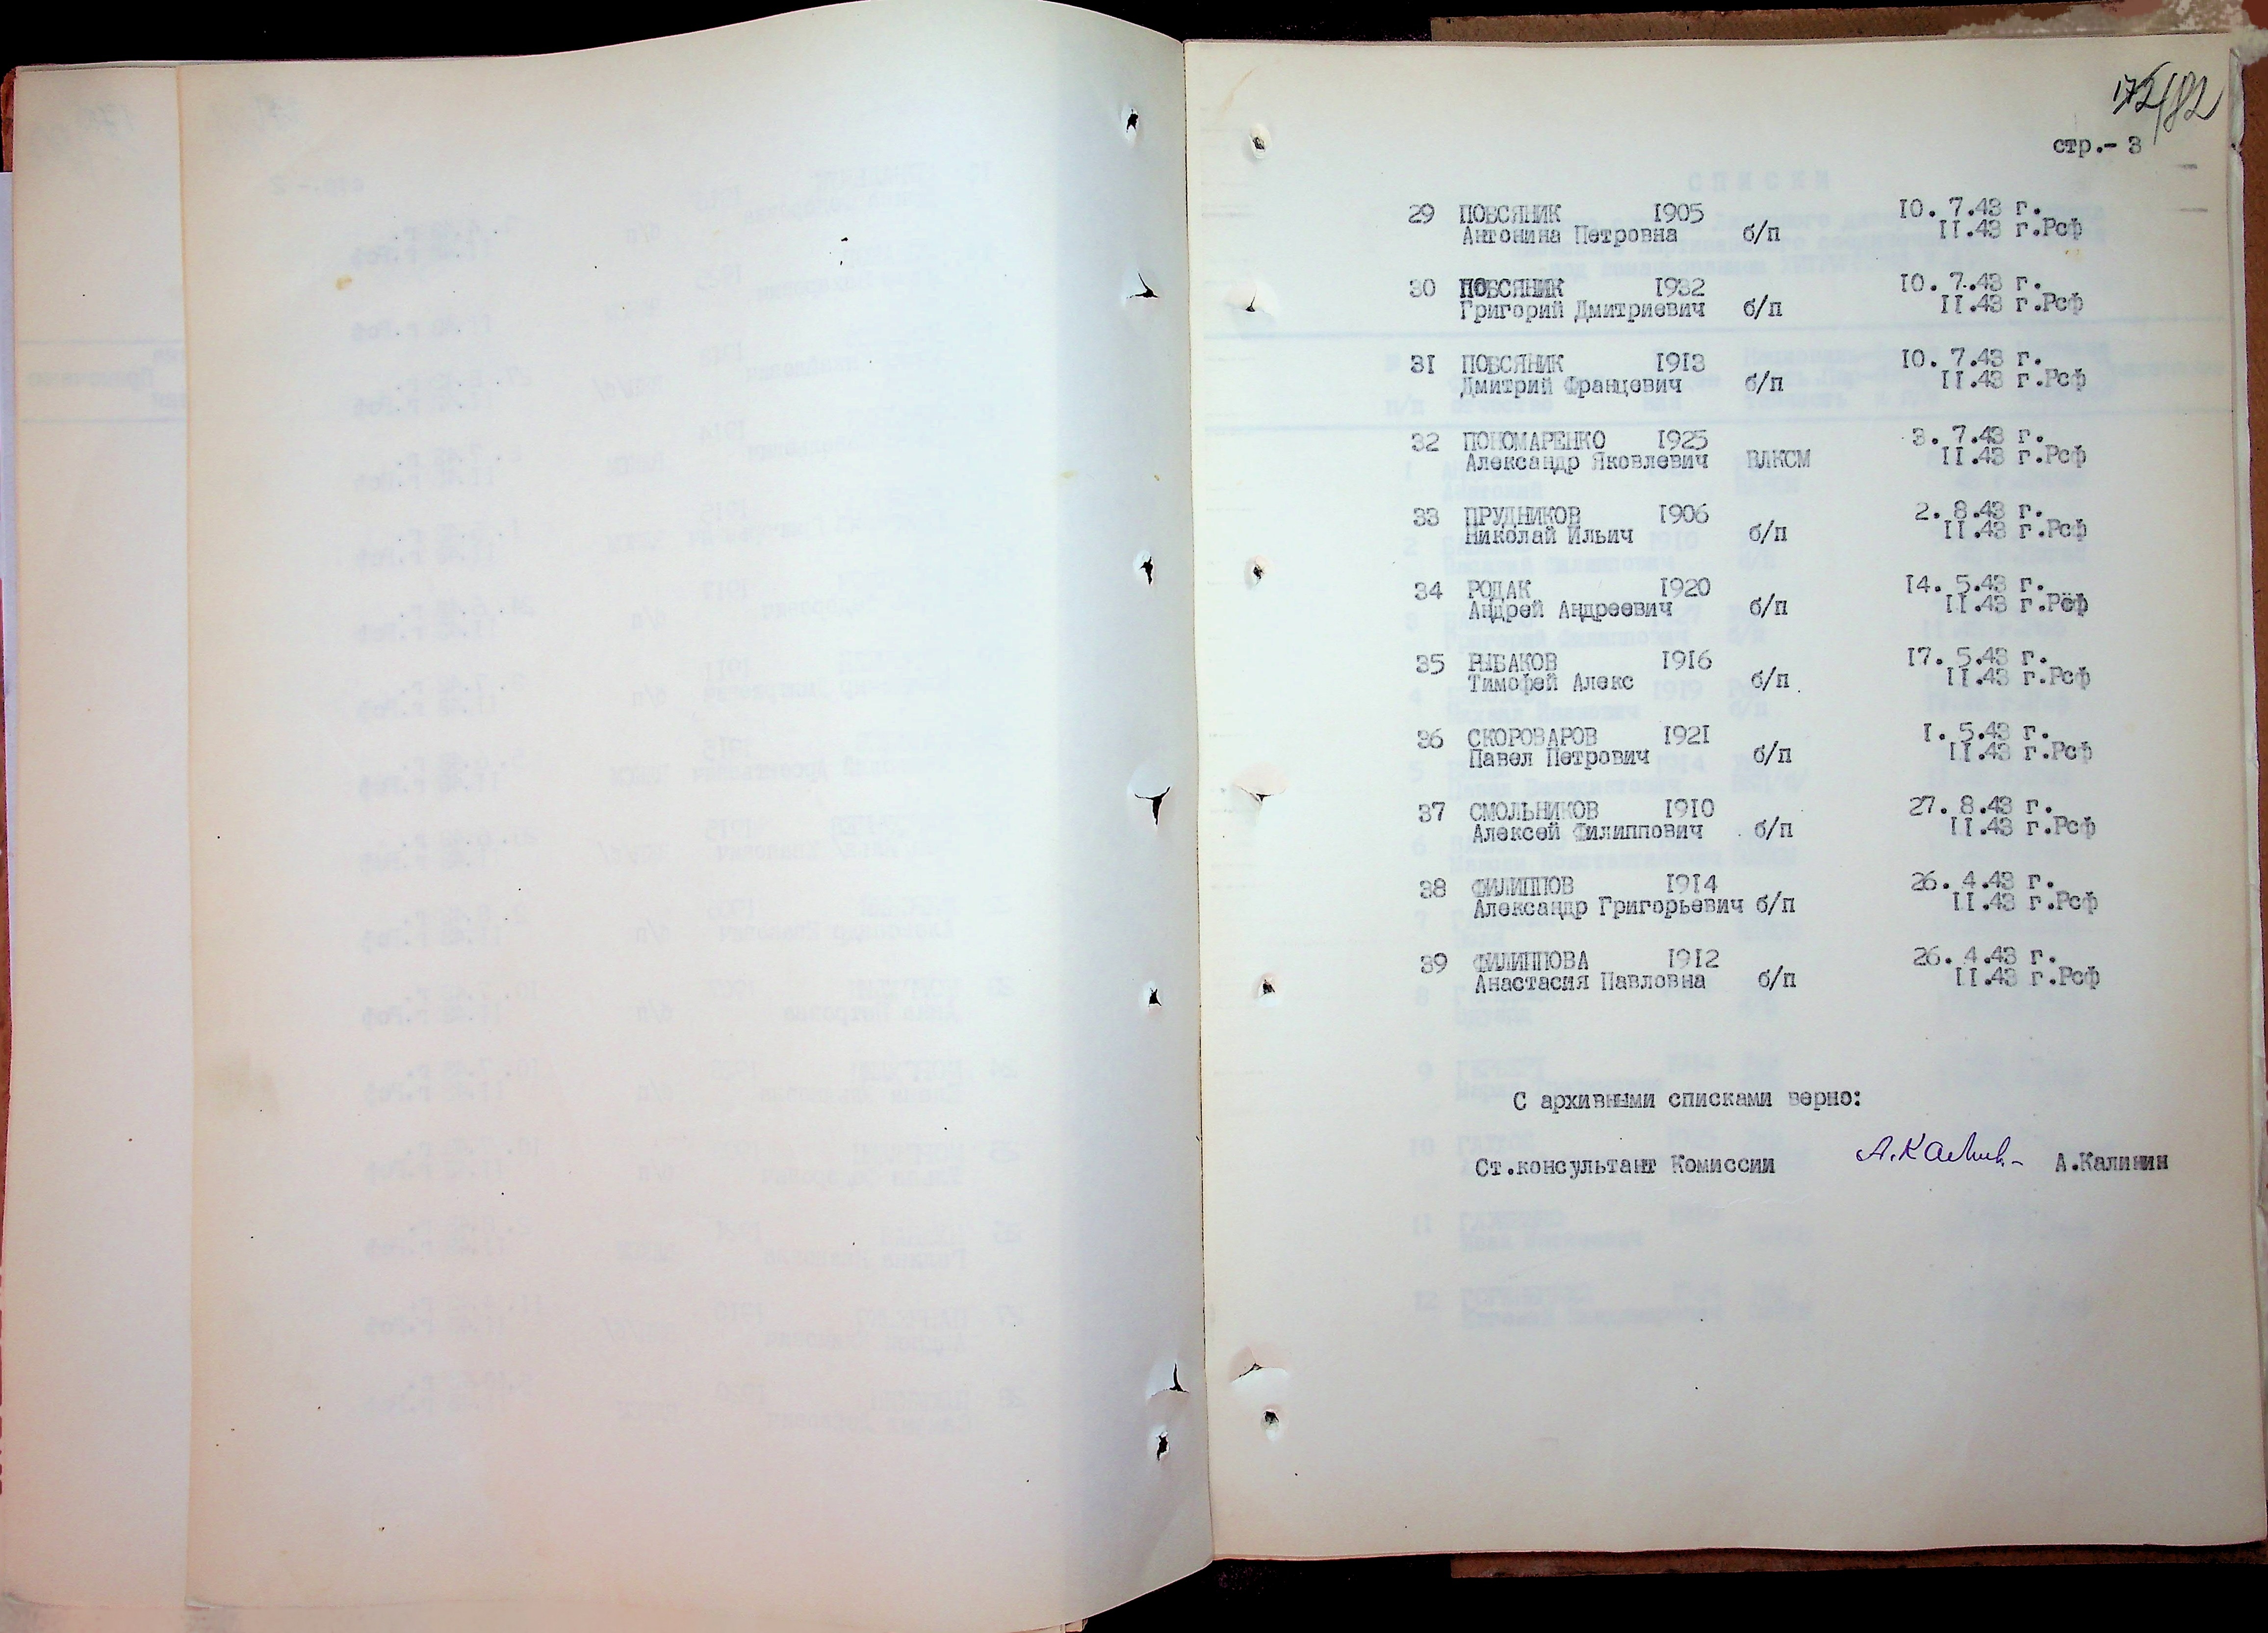 стр.- 3
29 ПОВСЯНИК 1905 10. 7.43 г.
Антонина Петровна б/п 11.43 г.Рсф
30 ПОВСЯНИК 1932 10. 7.43 г.
Григорий Дмитриевич б/п 11.43 г.Рсф
31 ПОВСЯНИК 1913 10. 7.43 г.
Дмитрий Францевич б/п 11.43 г.Рсф
32 ПОНОМАРЕНКО 1925 3. 7.43 г.
Александр Яковлевич ВЛКСМ 11.43 г.Рсф
33 ПРУДНИКОВ 1906 2. 8.43 г.
Николай Ильич б/п 11.43 г.Рсф
34 РОДАК 1920 14. 5.43 г.
Андрей Андреевич б/п 11.43 г.Рсф
35 РЫБАКОВ 1916 17. 5.43 г.
Тимофей Алекс б/п 11.43 г.Рсф
36 СКОРОВАРОВ 1921 1. 5.43 г.
Павел Петрович б/п 11.43 г.Рсф
37 СМОЛЬНИКОВ 1910 27. 8.43 г.
Алексей Филиппович б/п 11.43 г.Рсф
38 ФИЛИППОВ 1914 26. 4.43 г.
Александр Григорьевич б/п 11.43 г.Рсф
39 ФИЛИППОВА 1912 26. 4.43 г.
Анастасия Павловна б/п 11.43 г.Рсф
С архивными списками верно:
Ст.консультант Комиссии А.Калинин